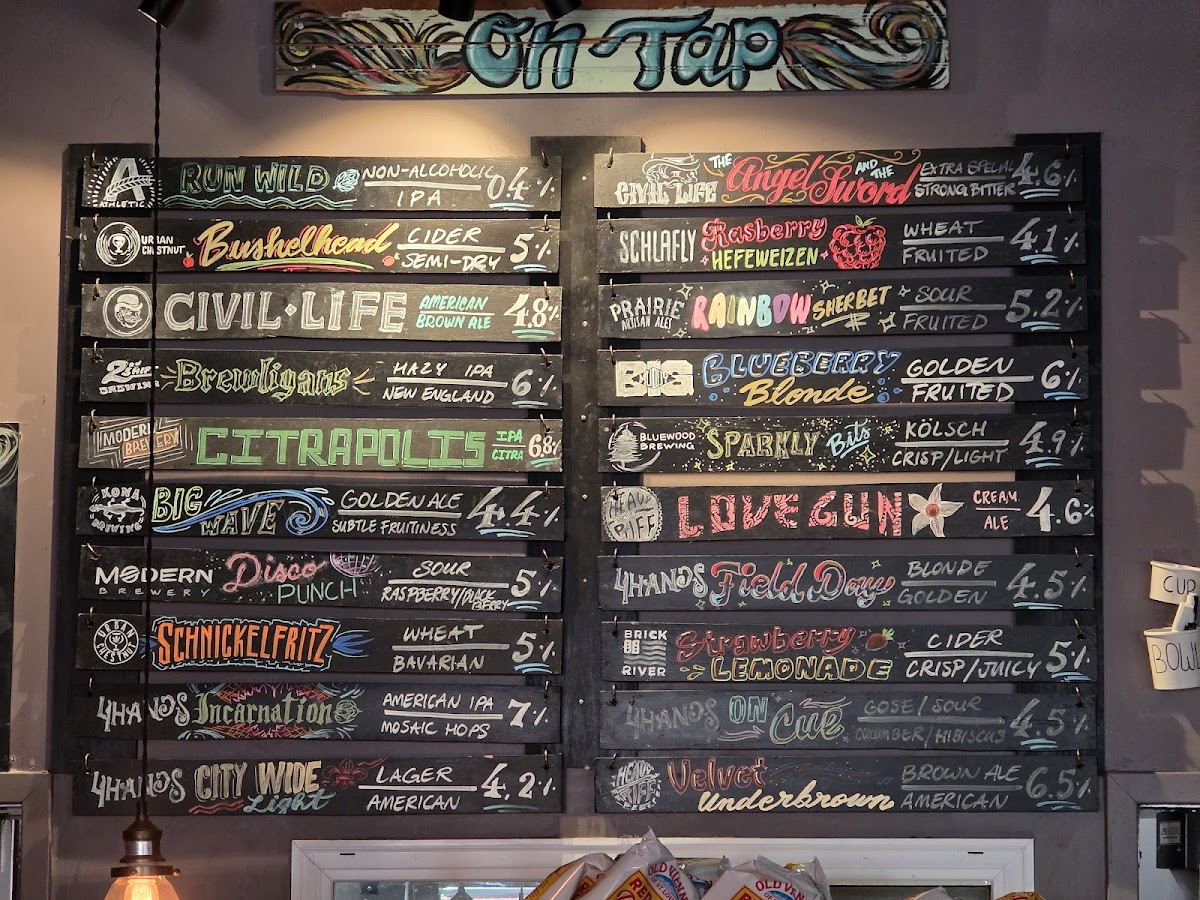 On-Tap
A
ATHLETIC
RUN WILD
NON-ALCOHOLIC
IPA
04%
URBAN
CHESTNUT
Bushelhead
CIDER
SEMI-DRY
5%
CIVIL·LIFE
AMERICAN
BROWN ALE
4.8%
2nd SHIFT
BREWING
Brewligans
HAZY IPA
NEW ENGLAND
6%
MODERN
BREWERY
CITRAPOLIS
IPA
CITRA
6.8%
KONA
BREWING
BIG
WAVE
GOLDEN ALE
SUBTLE FRUITINESS
4.4%
MODERN
BREWERY
Disco
PUNCH
SOUR
RASPBERRY/BLACK
BERRY
5%
URBAN
CHESTNUT
SCHNICKELFRITZ
WHEAT
BAVARIAN
5%
4HANDS
Incarnation
AMERICAN IPA
MOSAIC HOPS
7%
4HANDS
CITY WIDE
Light
LAGER
AMERICAN
4.2%
CIVIL LIFE
THE
Angel
AND THE
Sword
EXTRA SPECIAL
STRONG BITTER
4.6%
SCHLAFLY
Rasberry
HEFEWEIZEN
WHEAT
FRUITED
4.1%
PRAIRIE
ARTISAN ALES
RAINBOW
SHERBET
SOUR
FRUITED
5.2%
BIG
BLUEBERRY
Blonde
GOLDEN
FRUITED
6%
BLUEWOOD
BREWING
SPARKLY
Bits
KÖLSCH
CRISP/LIGHT
4.9%
HEAVY
RIFF
LOVE GUN
CREAM
ALE
4.6%
4HANDS
Field Day
BLONDE
GOLDEN
4.5%
BRICK
RIVER
Strawberry
LEMONADE
CIDER
CRISP/JUICY
5%
4HANDS
ON
Cue
GOSE/SOUR
CUCUMBER/HIBISCUS
4.5%
HEAVY
RIFF
Velvet
Underbrown
BROWN ALE
AMERICAN
6.5%
CUP
BOWL
OLD VIENNA
RED
OLD VIENNA